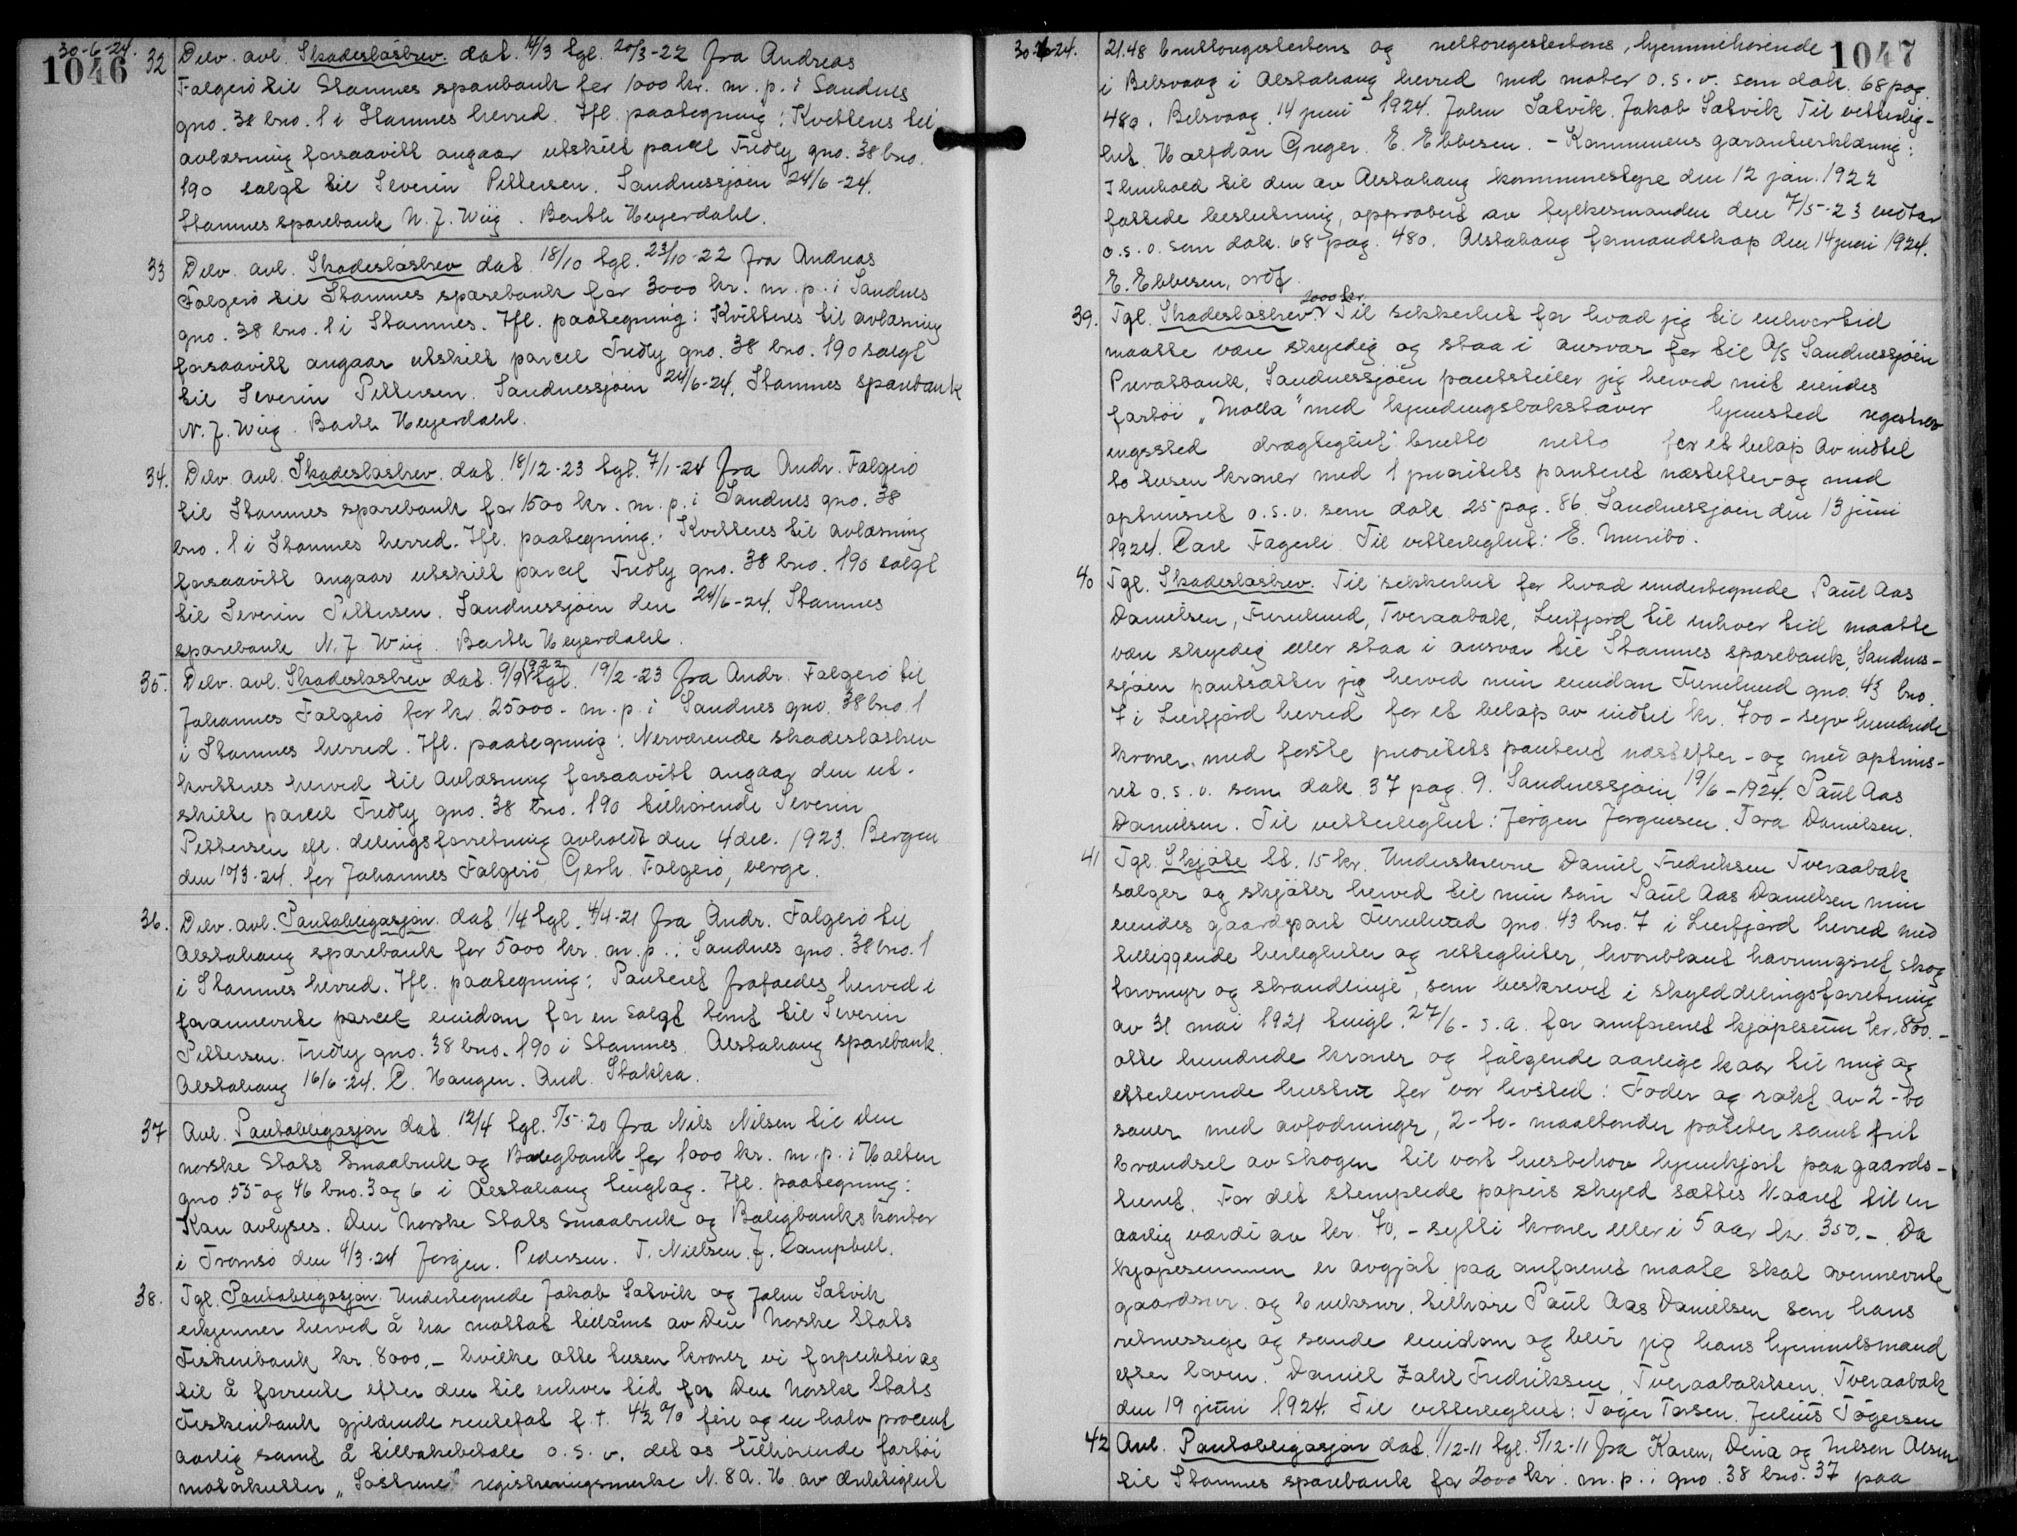 30-6-24.
1046
32 Delv. avl. Skadesløsbrev. dat. 14/3 tgl. 20/3-22 fra Andreas
Falgerö til Stamnes sparebank for 1000 kr. m. p. i Sandnes
gno. 38 bno. 1 i Stamnes herred. Ifl. paategning: Kvitteres til
avlæsning forsaavitt angaar utskilt parcel Fredly gno. 38 bno.
190 solgt til Severin Pettersen. Sandnessjøen 24/6-24.
Stamnes sparebank N. J. Wiig. Barth Heyerdahl.
33 Delv. avl. Skadesløsbrev dat. 18/10 tgl. 23/10-22 fra Andreas
Falgerö til Stamnes sparebank for 3000 kr. m. p. i Sandnes
gno. 38 bno. 1 i Stamnes. Ifl. paategning: Kvitteres til avlæsning
forsaavitt angaar utskilt parcel Fredly gno. 38 bno. 190 solgt
til Severin Pettersen. Sandnessjøen 24/6-24. Stamnes sparebank
N. J. Wiig. Barth Heyerdahl.
34. Delv. avl. Skadesløsbrev. dat. 18/12-23 tgl. 7/1-24 fra Andr. Falgerö
til Stamnes sparebank for 1500 kr. m. p. i Sandnes gno. 38
bno. 1 i Stamnes herred. Ifl. paategning: Kvitteres til avlæsning
forsaavitt angaar utskilt parcel Fredly gno. 38 bno. 190 solgt
til Severin Pettersen. Sandnessjøen den 24/6-24. Stamnes
sparebank N. J. Wiig. Barth Heyerdahl.
35. Delv. avl. Skadesløsbrev dat. 9/9 1922 tgl. 19/2-23 fra Andr. Falgerö til
Johannes Falgerö for kr. 25000.- m. p. i Sandnes gno. 38 bno. 1
i Stamnes herred. Ifl. paategning: Nerværende skadesløsbrev
kvitteres herved til avlæsning forsaavitt angaar den ut-
skilte parcel Fredly gno. 38 bno. 190 tilhörende Severin
Pettersen efl. delingsforretning avholdt den 4 dec. 1923. Bergen
den 10/3-24. for Johannes Falgerö Gerh. Falgerö, verge.
36. Delv. avl. Pantobligasjon. dat. 1/4 tgl. 4/4-21 fra Andr. Falgerö til
Alstahaug sparebank for 5000 kr. m. p. i Sandnes gno. 38 bno. 1
i Stamnes herred. Ifl. paategning: Panteret frafaldes herved i
forannevnte parcel eiendom for en solgt tomt til Severin
Pettersen. Fredly gno. 38 bno. 190 i Stamnes. Alstahaug sparebank.
Alstahaug 16/6-24. C. Haugen. And. Stokka.
37 Avl. Pantobligasjon dat. 12/4 tgl. 5/5-20 fra Nils Nilsen til Den
norske Stats Smaabruk og Boligbank for 1000 kr. m. p. i Halten
gno. 55 og 46 bno. 3 og 6 i Alstahaug tinglag. Ifl. paategning:
Kan avlyses. Den Norske Stats Smaabruk og Boligbanks kontor
i Tromsö den 4/3-24 Jørgen. Pedersen. T. Nielsen. J. Campbell.
38. Tgl. Pantobligasjon. Undertegnede Jakob Satvik og John Satvik
erkjenner herved å ha mottat tillåns av Den Norske Stats
Fiskeribank kr. 8000.- hvilke otte tusen kroner vi forplikter os
til å forrente efter den til enhver tid for Den Norske Stats
Fiskeribank gjeldende rentefot f. t. 4½ % fire og en halv procent
aarlig samt å tilbakebetale o. s. v. det os tilhörende fartöi
motorkutter „Söstrene" registreringsmerke N. 8 A. H. av drektighet
30-6-24.
1047
21.48 bruttoregistertons og nettoregistertons, hjemmehörende
i Belsvaag i Alstahaug herred med motor o. s. v. som dok. 68 pag.
480. Belsvaag. 14 juni 1924. John Satvik. Jakob Satvik Til vitterlig-
het. Halfdan Greger. E. Ebbesen. - Kommunens garantierklæring:
I henhold til den av Alstahaug kommunestyre den 12 jan. 1922
fattede beslutning, approbert av fylkesmanden den 7/5-23 indtar
o. s. v. som dok. 68 pag. 480. Alstahaug formandskap den 14 juni 1924.
E. Ebbesen, ordf.
39. Tgl. Skadesløsbrev. 2000 kr. Til sikkerhet for hvad jeg til enhvertid
maatte være skyldig og staa i ansvar for til A/S Sandnessjøen
Privatbank, Sandnessjøen pantstiller jeg herved mit eiendes
fartöi „Molla" med kjendingsbokstaver hjemsted registrer
ingssted drægtighet brutto netto for et belöp av indtil
to tusen kroner med 1 prioritets panteret næstefter og med
optrinsret o. s. v. som dok. 25 pag. 86. Sandnessjøen den 13 juni
1924. Carl Fagerli. Til vitterlighet: E. Muribö.
40 Tgl. Skadesløsbrev. Til sikkerhet for hvad undertegnede Paul Aas
Danielsen, Furulund, Tveraabak, Leirfjord til enhver tid maatte
være skyldig eller staa i ansvar til Stamnes sparebank, Sandnes-
sjøen pantsætter jeg herved min eiendom Furulund gno. 43 bno.
7 i Leirfjord herred for et belöp av indtil kr. 700- syv hundrede
kroner. med förste prioritets panteret næstefter- og med optrins-
ret o. s. v. som dok 37 pag. 9. Sandnessjøen 19/6-1924. Paul Aas
Danielsen. Til vitterlighet: Jørgen Jørgensen. Tora Danielsen.
41 Tgl. Skjöte bt. 15 kr. Underskrevne Daniel Fredriksen Tveraabak
sælger og skjöter herved til min sön Paul Aas Danielsen min
eiendes gaardspart Furulund gno. 43 bno. 7 i Leirfjord herred med
tilliggende herligheter og rettigheter, hvoriblant havningsret skog
torvmyr og strandleuje, som beskrevet i skylddelingsforretning
av 31 mai 1921 tingl. 27/6-s. a. for omforenet kjöpesum kr. 800.-
otte hundrede kroner og fölgende aarlige kaar til mig og
efterlevende hustru for vor livstid: Foder og rökt av 2-to
sauer med avfodninger, 2-to-maaltönder poteter samt frit
brændsel av skogen til vort husbehov hjemkjört paa gaards-
tunet. For det stemplede papirs skyld sættes kaaret til en
aarlig værdi av kr. 70.- sytti kroner eller i 5 aar kr. 350.-. Da
kjöpesummen er avgjört paa omforenet maate skal ovennevnte
gaardsnr. og bruksnr. tilhöre Paul Aas Danielsen som hans
retmessige og sande eiendom og blir jeg hans hjemmelsmand
efter loven. Daniel Zahl Fredriksen, Tveraabakken, Tveraabak
den 19 juni 1924. Til vitterlighet: Töger Torsen. Julius Tögersen
42 Avl. Pantobligasjon dat. 1/12-11 tgl. 5/12-11 fra Karen, Dina og Nilsen Alsen
til Stamnes sparebank for 2000 kr. m. p. i gno. 38 bno. 37 paa